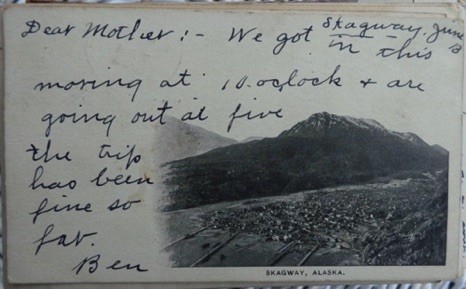 Skagway, June
13
Dear Mother:- We got in this
morning at 10.oclock & are
going out at five
the trip
has been
fine so
far.
Ben
SKAGWAY, ALASKA.